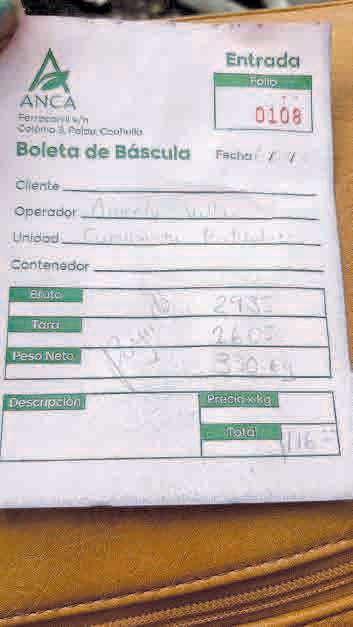 Entrada
Folio
0108
ANCA
Ferrocarril s/n
Colonia 3, Palau, Coahuila
Boleta de Báscula
Fecha / /
Cliente
Operador
Unidad Camioneta
Contenedor
Bruto 2935
Tara 2605
Peso Neto 330 kg
Descripción
Precio x kg
Total 116